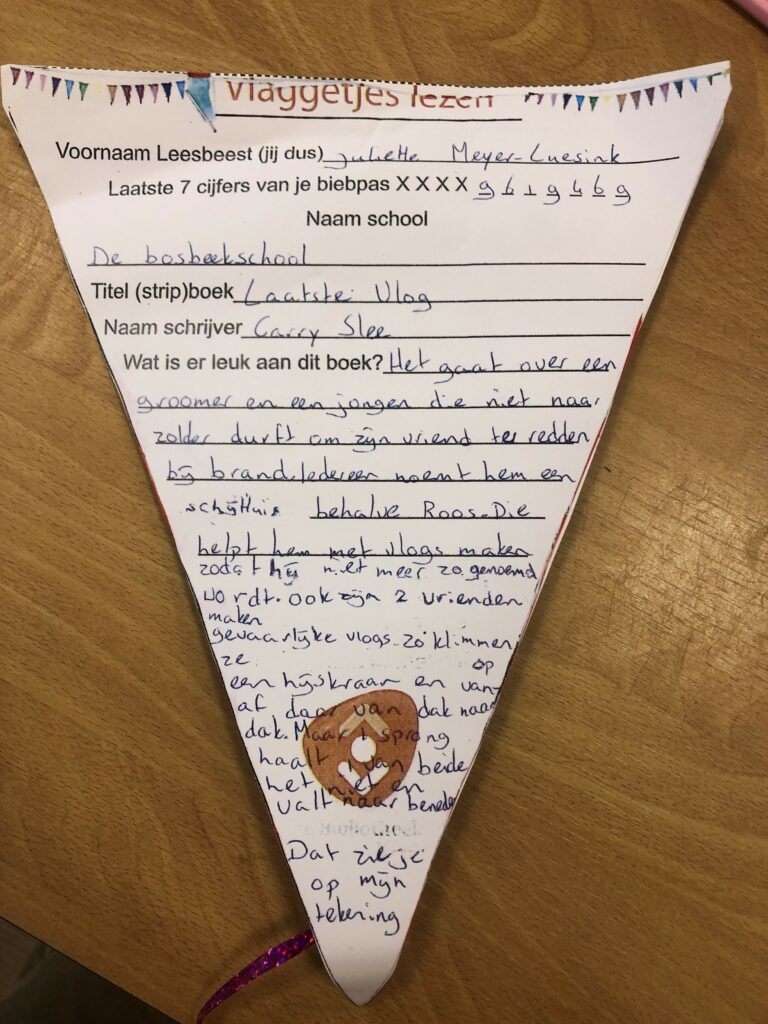 vlaggetjes lezen
Voornaam Leesbeest (jij dus) Juliette Meyer-Luesink
Laatste 7 cijfers van je biebpas X X X X 9 6 1 9 4 6 9
Naam school
De bosbeekschool
Titel (strip)boek Laatste Vlog
Naam schrijver Carry Slee
Wat is er leuk aan dit boek? Het gaat over een
groomer en een jongen die niet naar
zolder durft om zijn vriend te redden
bij brand. Iedereen noemt hem een
schijthuis behalve Roos. Die
helpt hem met vlogs maken
zodat hij niet meer zo genoemd
wordt. Ook zijn 2 vrienden
maken
gevaarlijke vlogs. zo klimmen
ze op
een hijskraan en van-
af daar van dak naar
dak. Maar 1 sprong
haalt 1 van beide
het niet en
valt naar beneden
Dat zie je
op mijn
tekening